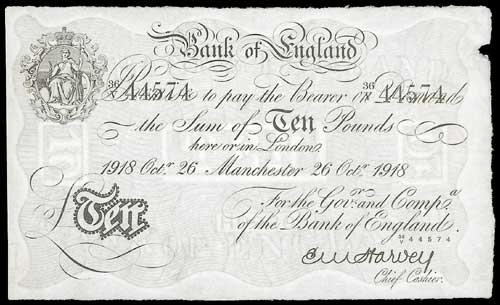 Bank of England
36/V 44574 36/V 44574
Promise to pay the Bearer on Demand
the Sum of Ten Pounds
here or in London.
1918 Octr. 26 Manchester 26 Octr. 1918
For the Govr. and Compa.
of the Bank of England.
£Ten
36/V 44574
E M Harvey
Chief Cashier.